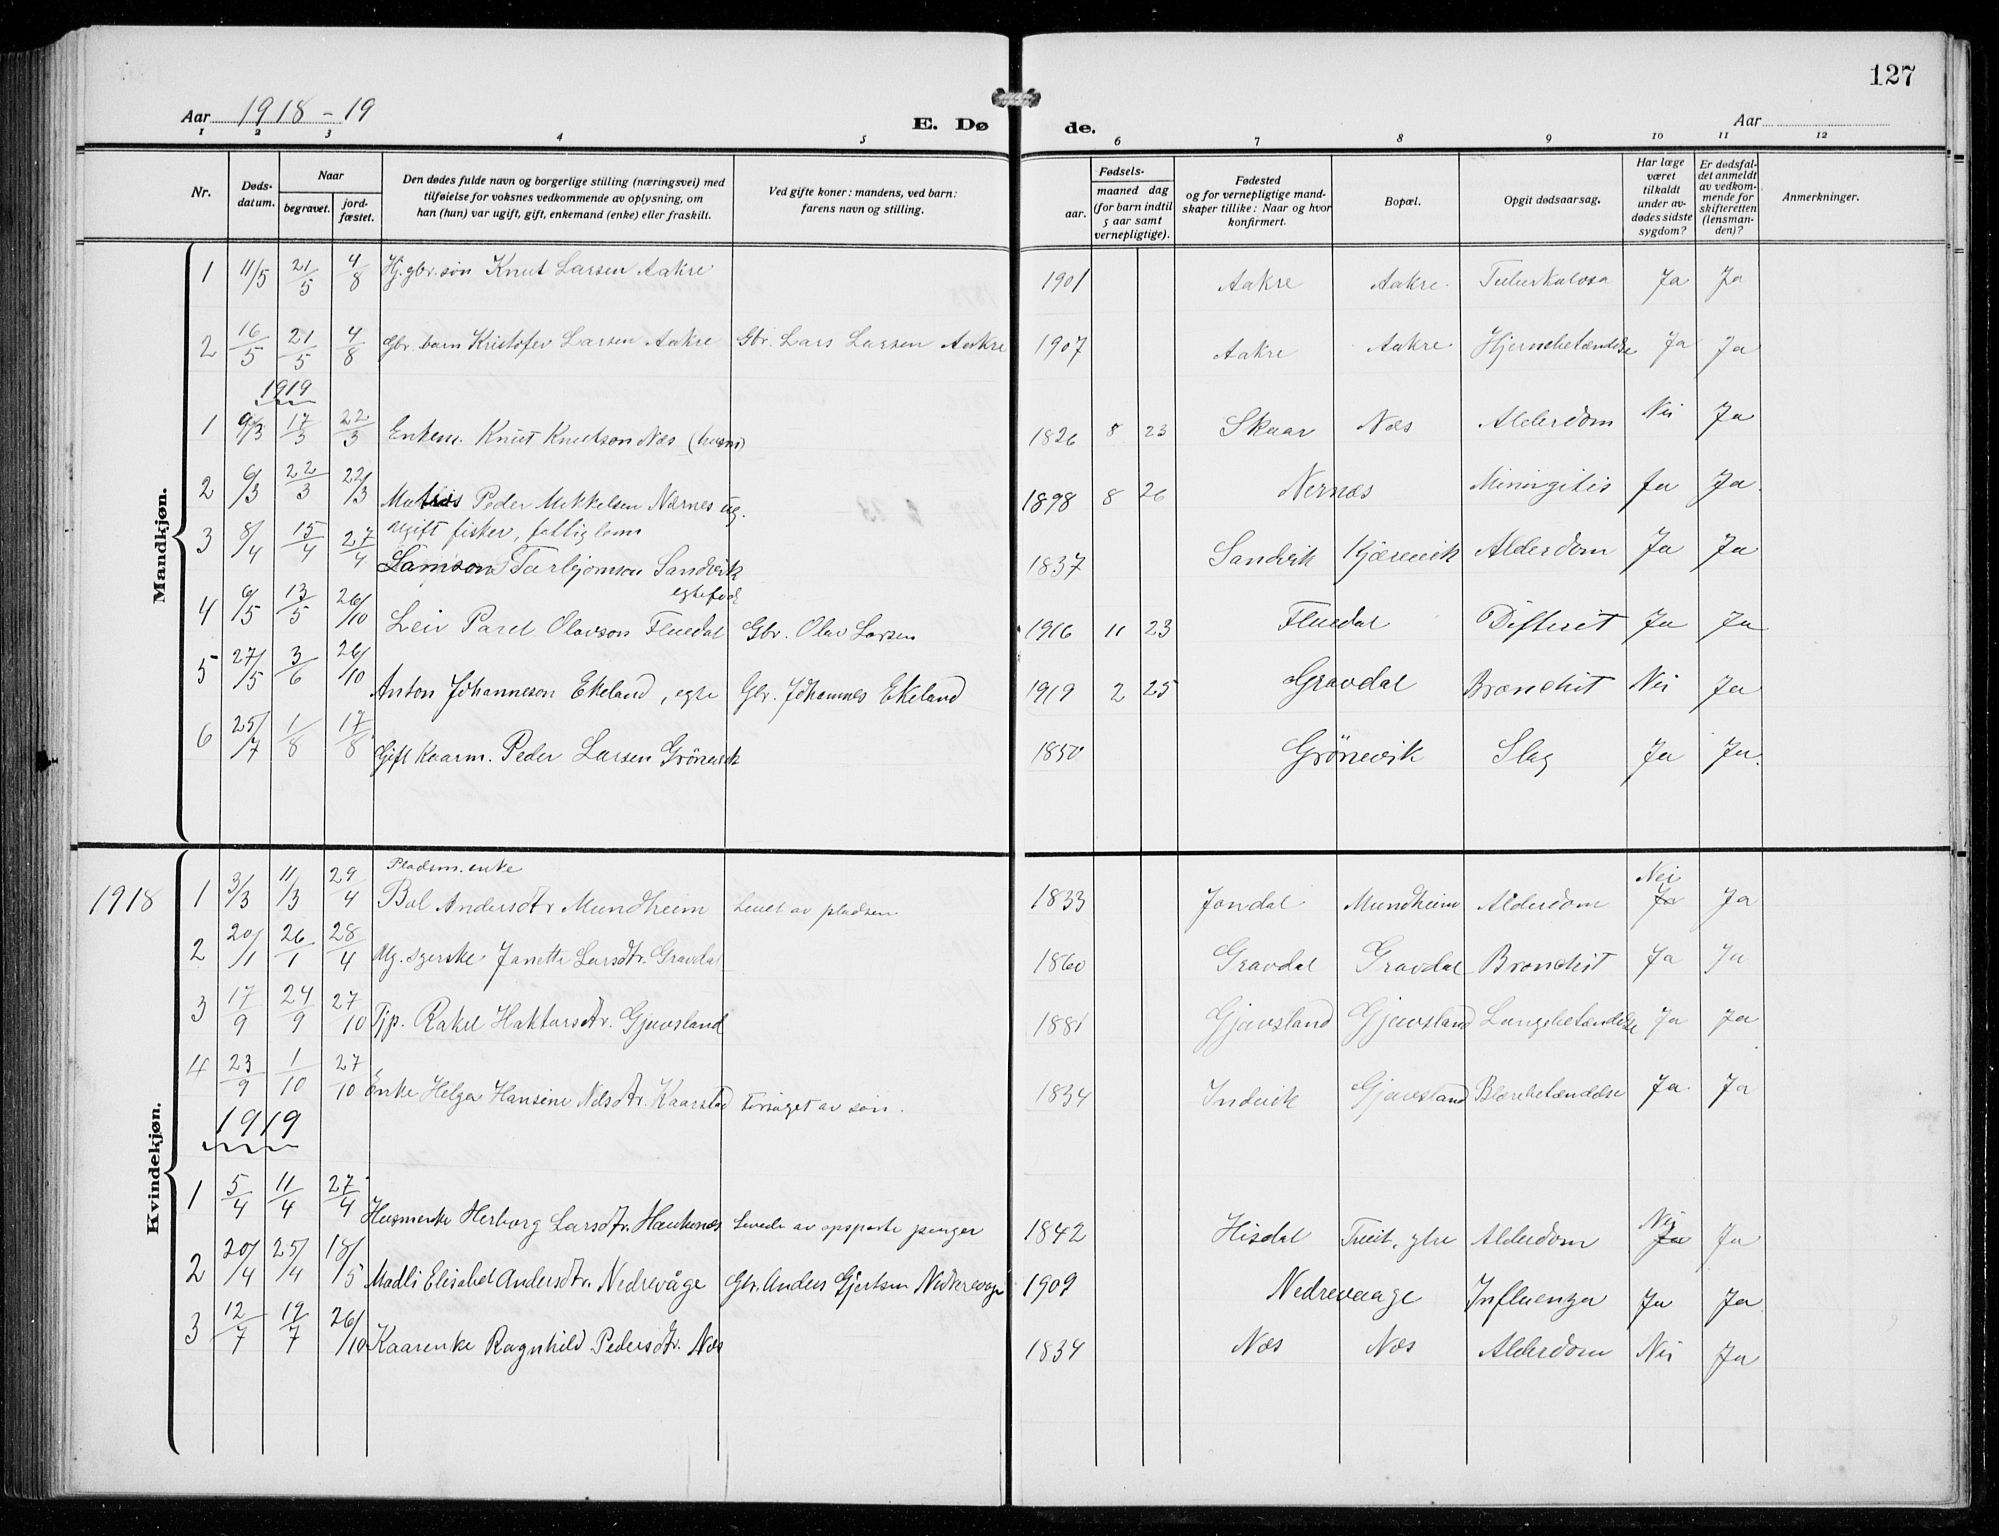 127
Aar 1918-19
E. Dø de.
Aar
1 2 3 4 5 6 7 8 9 10 11 12
Nr.
Døds-
datum.
Naar
begravet.
jord-
fæstet.
Den dødes fulde navn og borgerlige stilling (næringsvei) med
tilføielse for voksnes vedkommende av oplysning, om
han (hun) var ugift, gift, enkemand (enke) eller fraskilt.
Ved gifte koner: mandens, ved barn:
farens navn og stilling.
Fødsels-
aar.
maaned dag
(for barn indtil
5 aar samt
vernepligtige).
Fødested
og for vernepligtige mand-
skaper tillike: Naar og hvor
konfirmert.
Bopæl.
Opgit dødsaarsag.
Har læge
været
tilkaldt
under av-
dødes sidste
sygdom?
Er dødsfal-
det anmeldt
av vedkom-
mende for
skifteretten
(lensman-
den)?
Anmerkninger.
Mandkjøn.
1 11/5 21/5 4/8 Hj. gbr. søn Knut Larsen Aakre 1901 Aakre Aakre Tuberkulosa Ja Ja
2 16/5 21/5 4/8 Gbr. barn Kristofer Larsen Aakre Gbr. Lars Larsen Aakre 1907 Aakre Aakre Hjernebetændelse Ja Ja
1919
1 9/3 17/3 22/3 Enkem. Knut Knutson Næs (husm) 1826 8 23 Skaar Næs Alderdom Nei Ja
2 6/3 22/3 22/3 Matros Peder Mikkelsen Nærnes ug. 1898 8 26 Nernæs Miningitis Ja Ja
3 8/4 15/4 27/4 ugift fisker, fattiglem
Samson Torbjornson Sandvik 1837 Sandvik Kjærevik Alderdom Ja Ja
egtefødt
4 6/5 13/5 26/10 Leiv Parel Olavson Fluedal Gbr. Olav Larsen 1916 11 23 Fluedal Difterit Ja Ja
5 27/5 3/6 26/10 Anton Johanneson Ekeland, egte Gbr. Johannes Ekeland 1919 2 25 Gravdal Bronchit Nei Ja
6 25/7 1/8 17/8 Gift Kaarm. Peder Larsen Grönevik 1850 Grönevik Slag Ja Ja
Kvindekjøn.
Pladsm. enke
1918 1 3/3 11/3 29/4 Bol Andersdtr Mundheim Levet av pladsen 1833 Jondal Mundheim Alderdom Nei Ja Ja
2 20/1 26/1 28/4 Ug. syerske Janette Larsdtr. Gravdal 1860 Gravdal Gravdal Bronchit Ja Ja
3 17/9 24/9 27/10 Tjp. Rakel Haktorsdtr. Gjuvsland 1881 Gjuvsland Gjuvsland Lungebetændelse Ja Ja
4 23/9 1/10 27/10 Enke Helga Hansine Nilsdtr. Kaarstad Forsørget av søn. 1834 Indvik Gjuvsland Blærebetændelse Ja Ja
1919
1 5/4 11/4 27/4 Husmenke Herborg Larsdtr. Haukenæs Levede av opsparte penger 1842 Hisdal Tveit, ytre Alderdom Nei Ja Ja
2 20/4 25/4 18/5 Madli Elisabet Andersdtr. Nedrevåge Gbr. Anders Gjertsen Nedrevaage 1909 Nedrevaage Influenza Ja Ja
3 12/7 19/7 26/10 Kaarenke Ragnhild Pedersdtr. Næs 1834 Næs Næs Alderdom Nei Ja